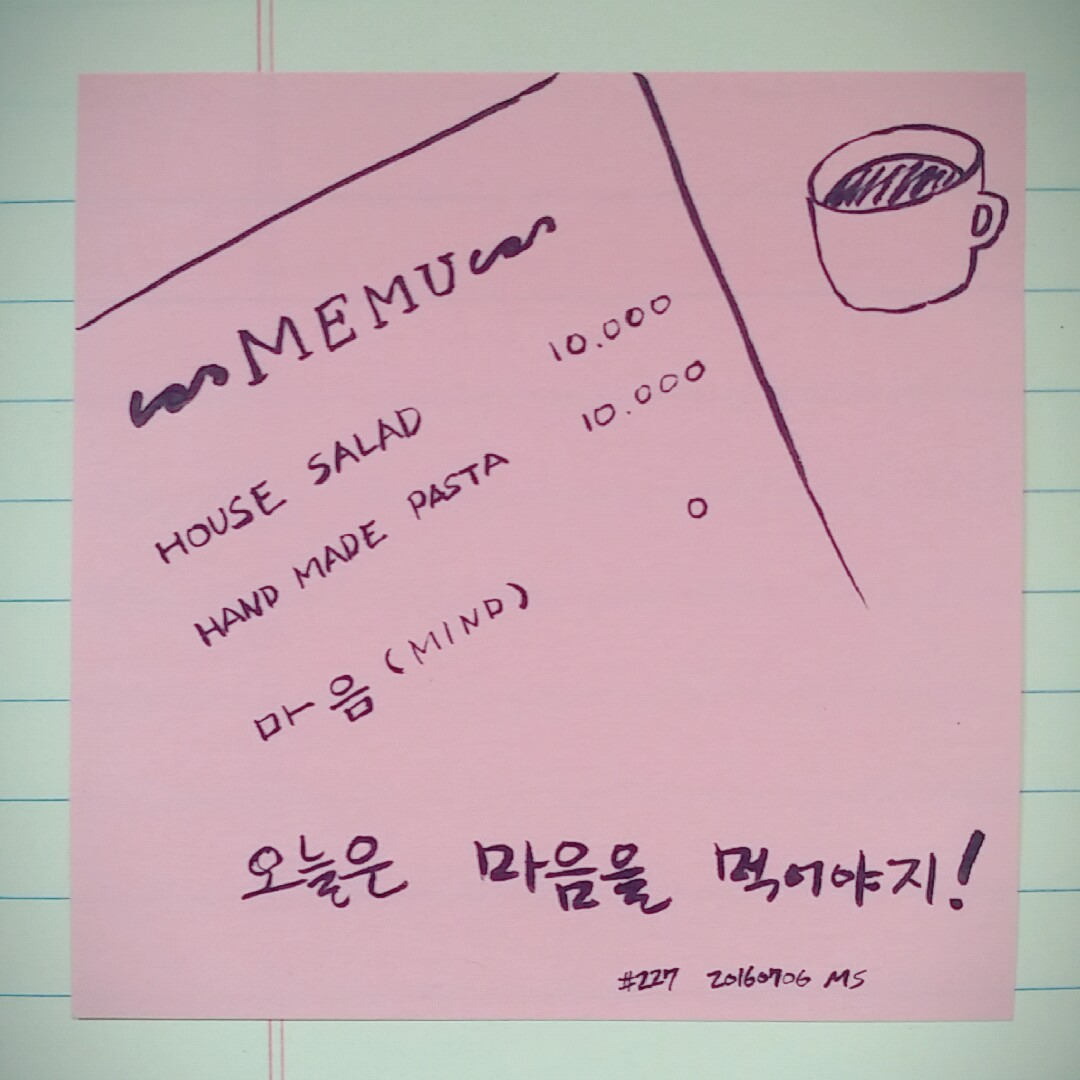 MEMU
HOUSE SALAD 10.000
HAND MADE PASTA 10.000
마음 (MIND) 0
오늘은 마음을 먹어야지!
#227 20160706 MS